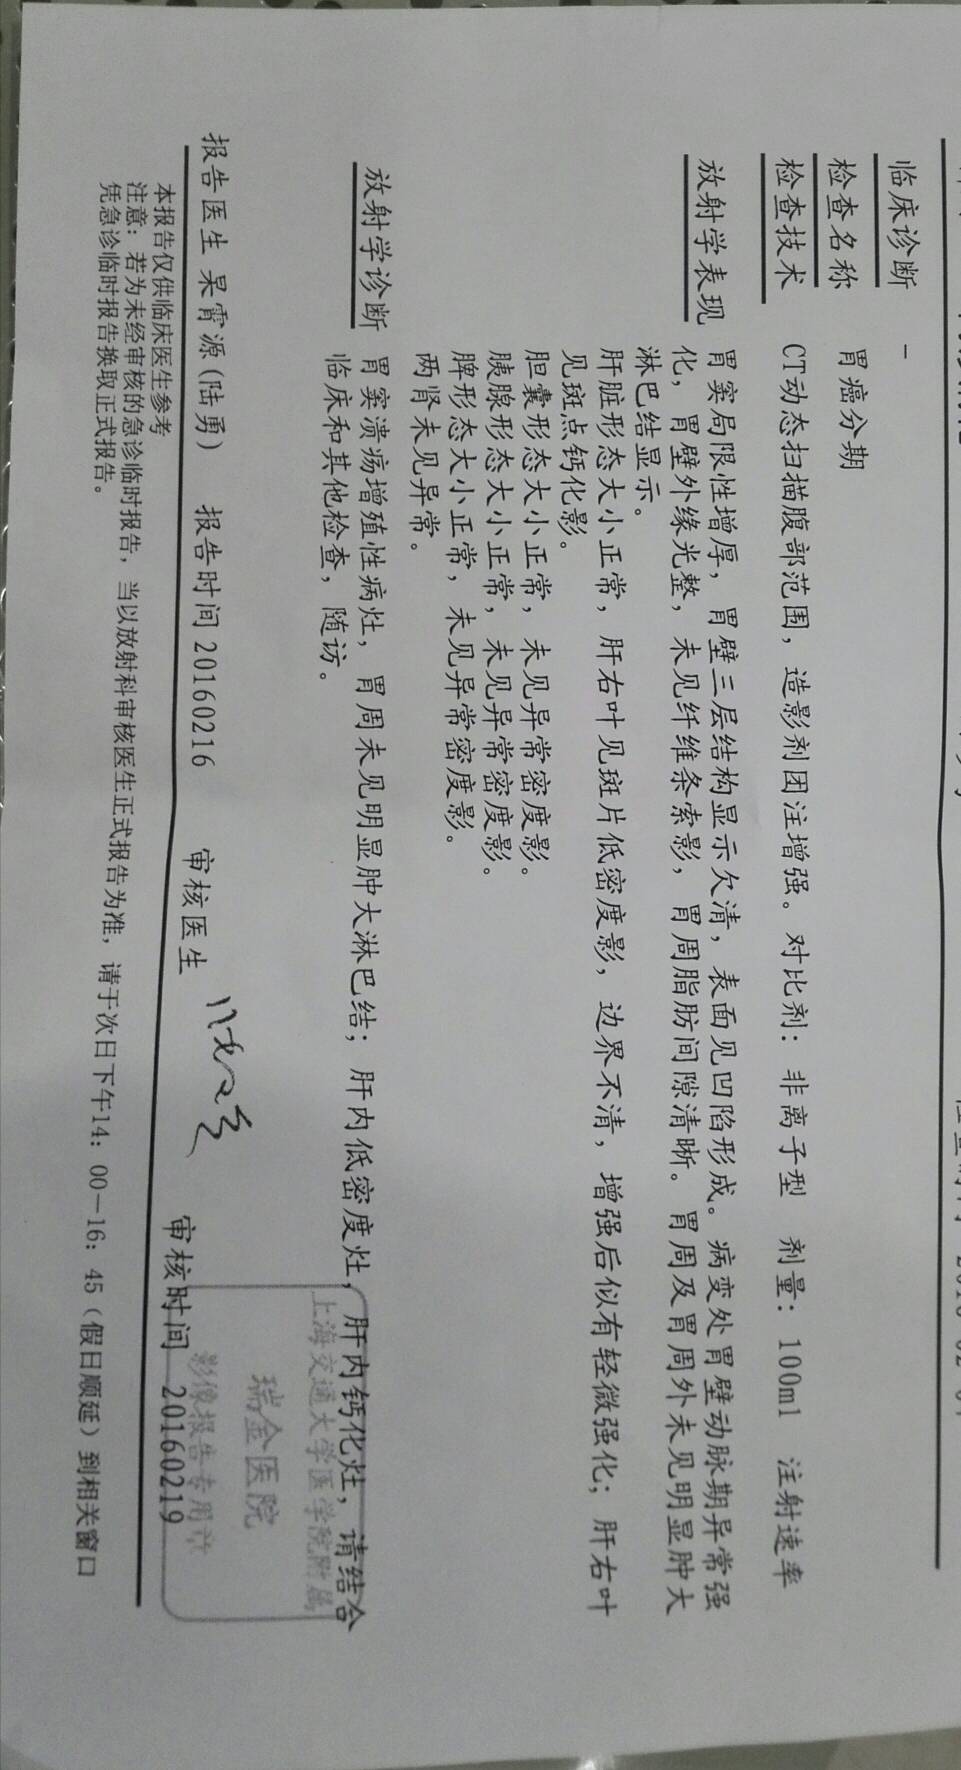 临床诊断 -
检查名称 胃癌分期
检查技术 CT动态扫描腹部范围，造影剂团注增强。对比剂：非离子型 剂量：100ml 注射速率
放射学表现 胃窦局限性增厚，胃壁三层结构显示欠清，表面见凹陷形成。病变处胃壁动脉期异常强
化，胃壁外缘光整，未见纤维条索影，胃周脂肪间隙清晰。胃周及胃周外未见明显肿大
淋巴结显示。
肝脏形态大小正常，肝右叶见斑片低密度影，边界不清，增强后似有轻微强化；肝右叶
见斑点钙化影。
胆囊形态大小正常，未见异常密度影。
胰腺形态大小正常，未见异常密度影。
脾形态大小正常，未见异常密度影。
两肾未见异常。
放射学诊断 胃窦溃疡增殖性病灶，胃周未见明显肿大淋巴结；肝内低密度灶，肝内钙化灶，请结合
临床和其他检查，随访。
上海交通大学医学院附属
瑞金医院
影像报告专用章
报告医生 果霄源(陆勇) 报告时间 20160216 审核医生 审核时间 20160219
本报告仅供临床医生参考
注意：若为未经审核的急诊临时报告，当以放射科审核医生正式报告为准，请于次日下午14：00—16：45（假日顺延）到相关窗口
凭急诊临时报告换取正式报告。